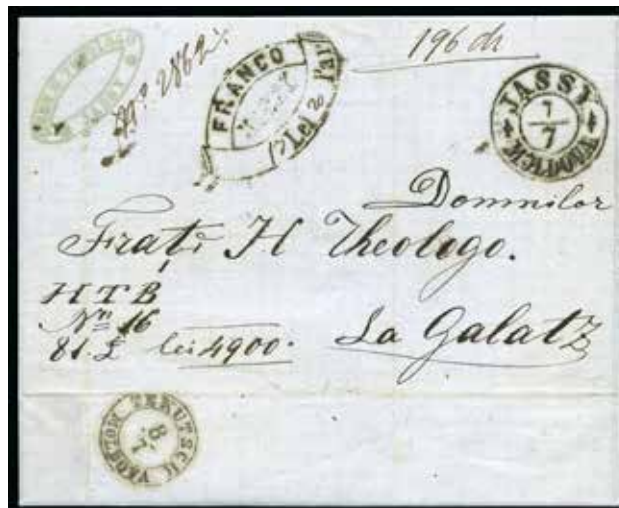 No 2862.
FRANCO
Lei Par
196 dh
JASSY
7/7
MOLDOVA
Domnilor
Frați H Theologo.
HTB
No 16
81. £ lei 4900.
La Galatz
TEKUTSCH MOLDOVA
8/7